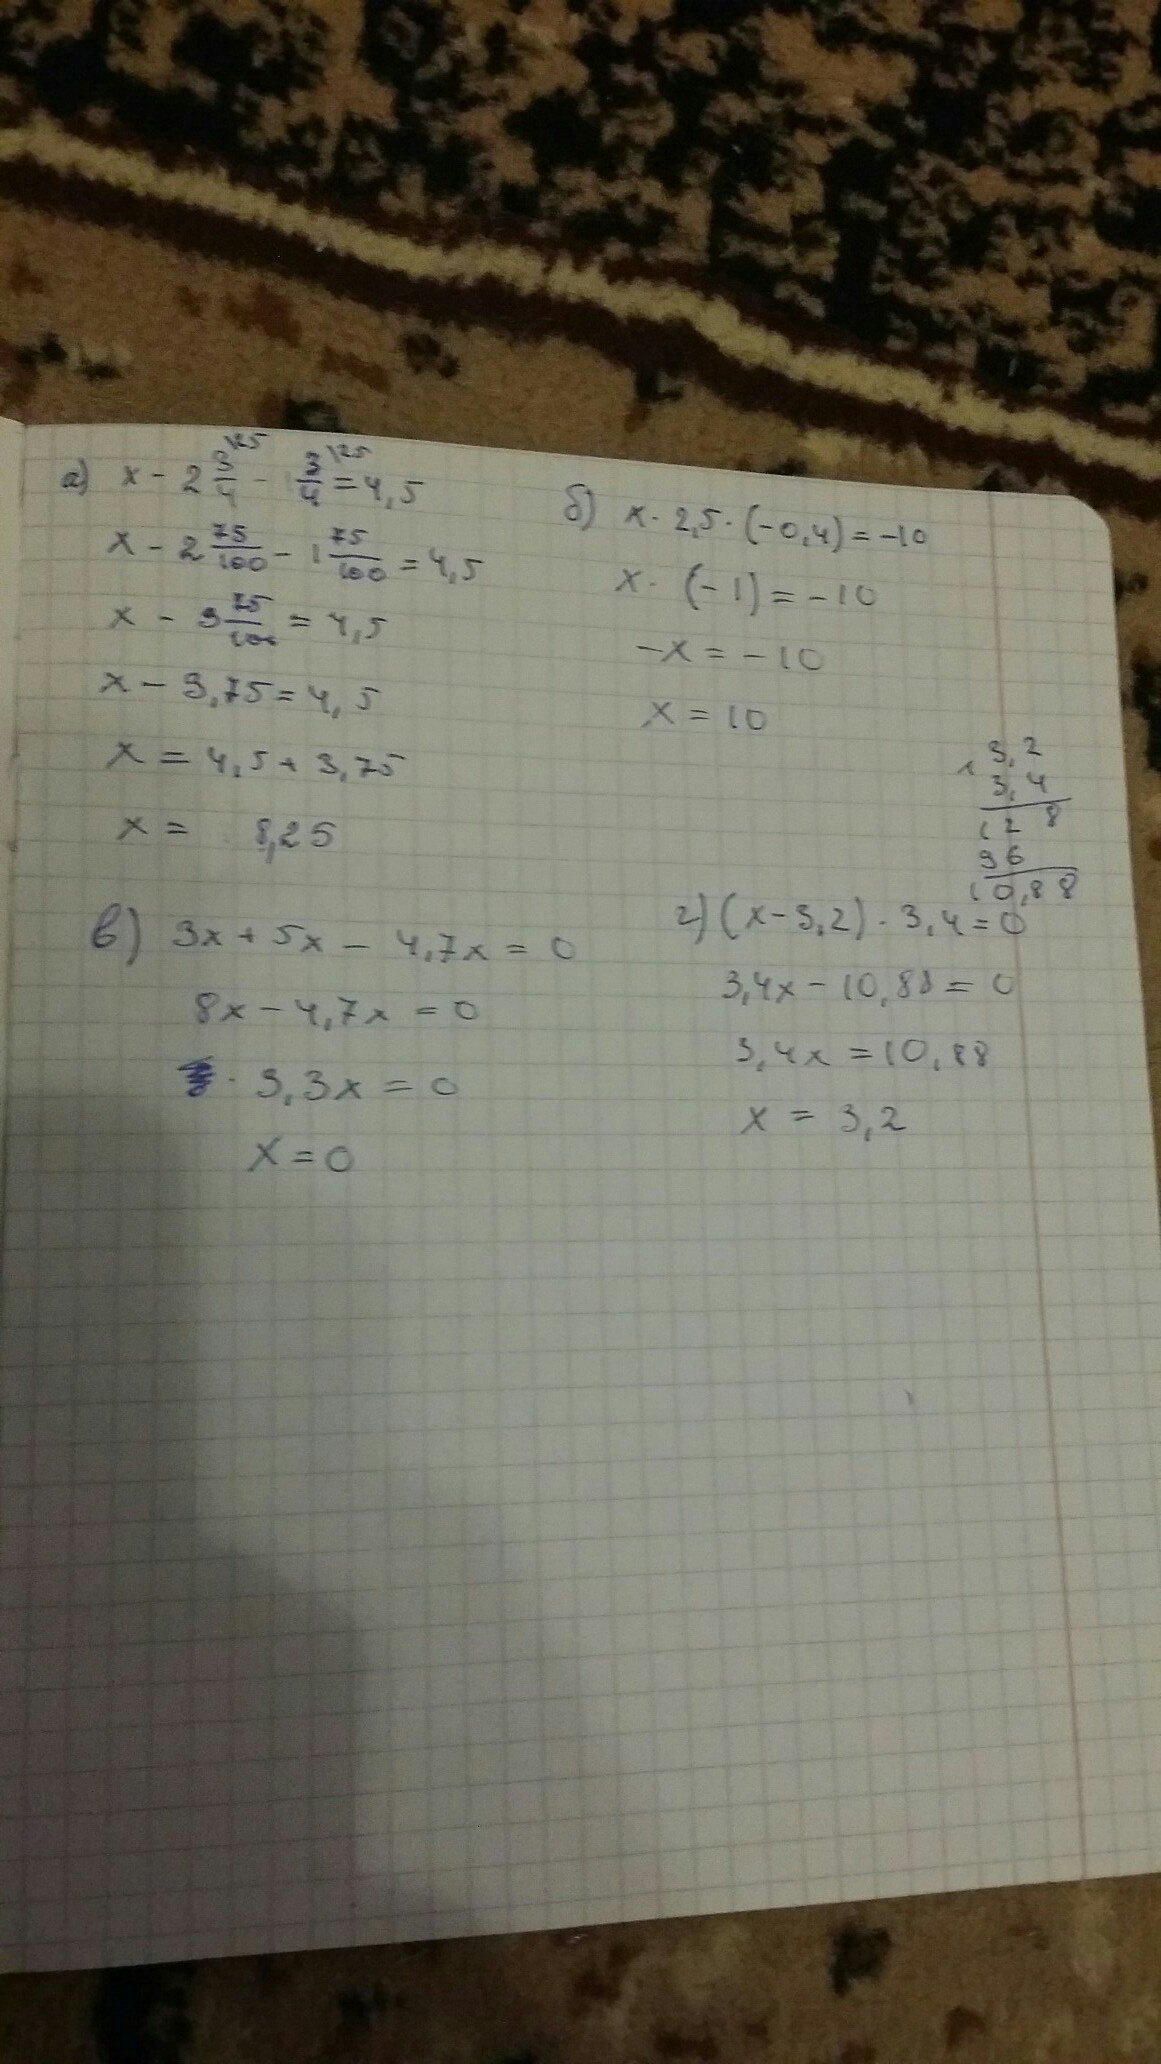 а) x - 2 3/4 \25 - 1 3/4 \25 = 4,5
x - 2 75/100 - 1 75/100 = 4,5
x - 3 75/100 = 4,5
x - 3,75 = 4,5
x = 4,5 + 3,75
x = 8,25
б) x · 2,5 · (-0,4) = -10
x · (-1) = -10
-x = -10
x = 10
× 3,2
3,4
12 8
96
10,88
в) 3x + 5x - 4,7x = 0
8x - 4,7x = 0
3,3x = 0
x = 0
г) (x - 3,2) · 3,4 = 0
3,4x - 10,88 = 0
3,4x = 10,88
x = 3,2